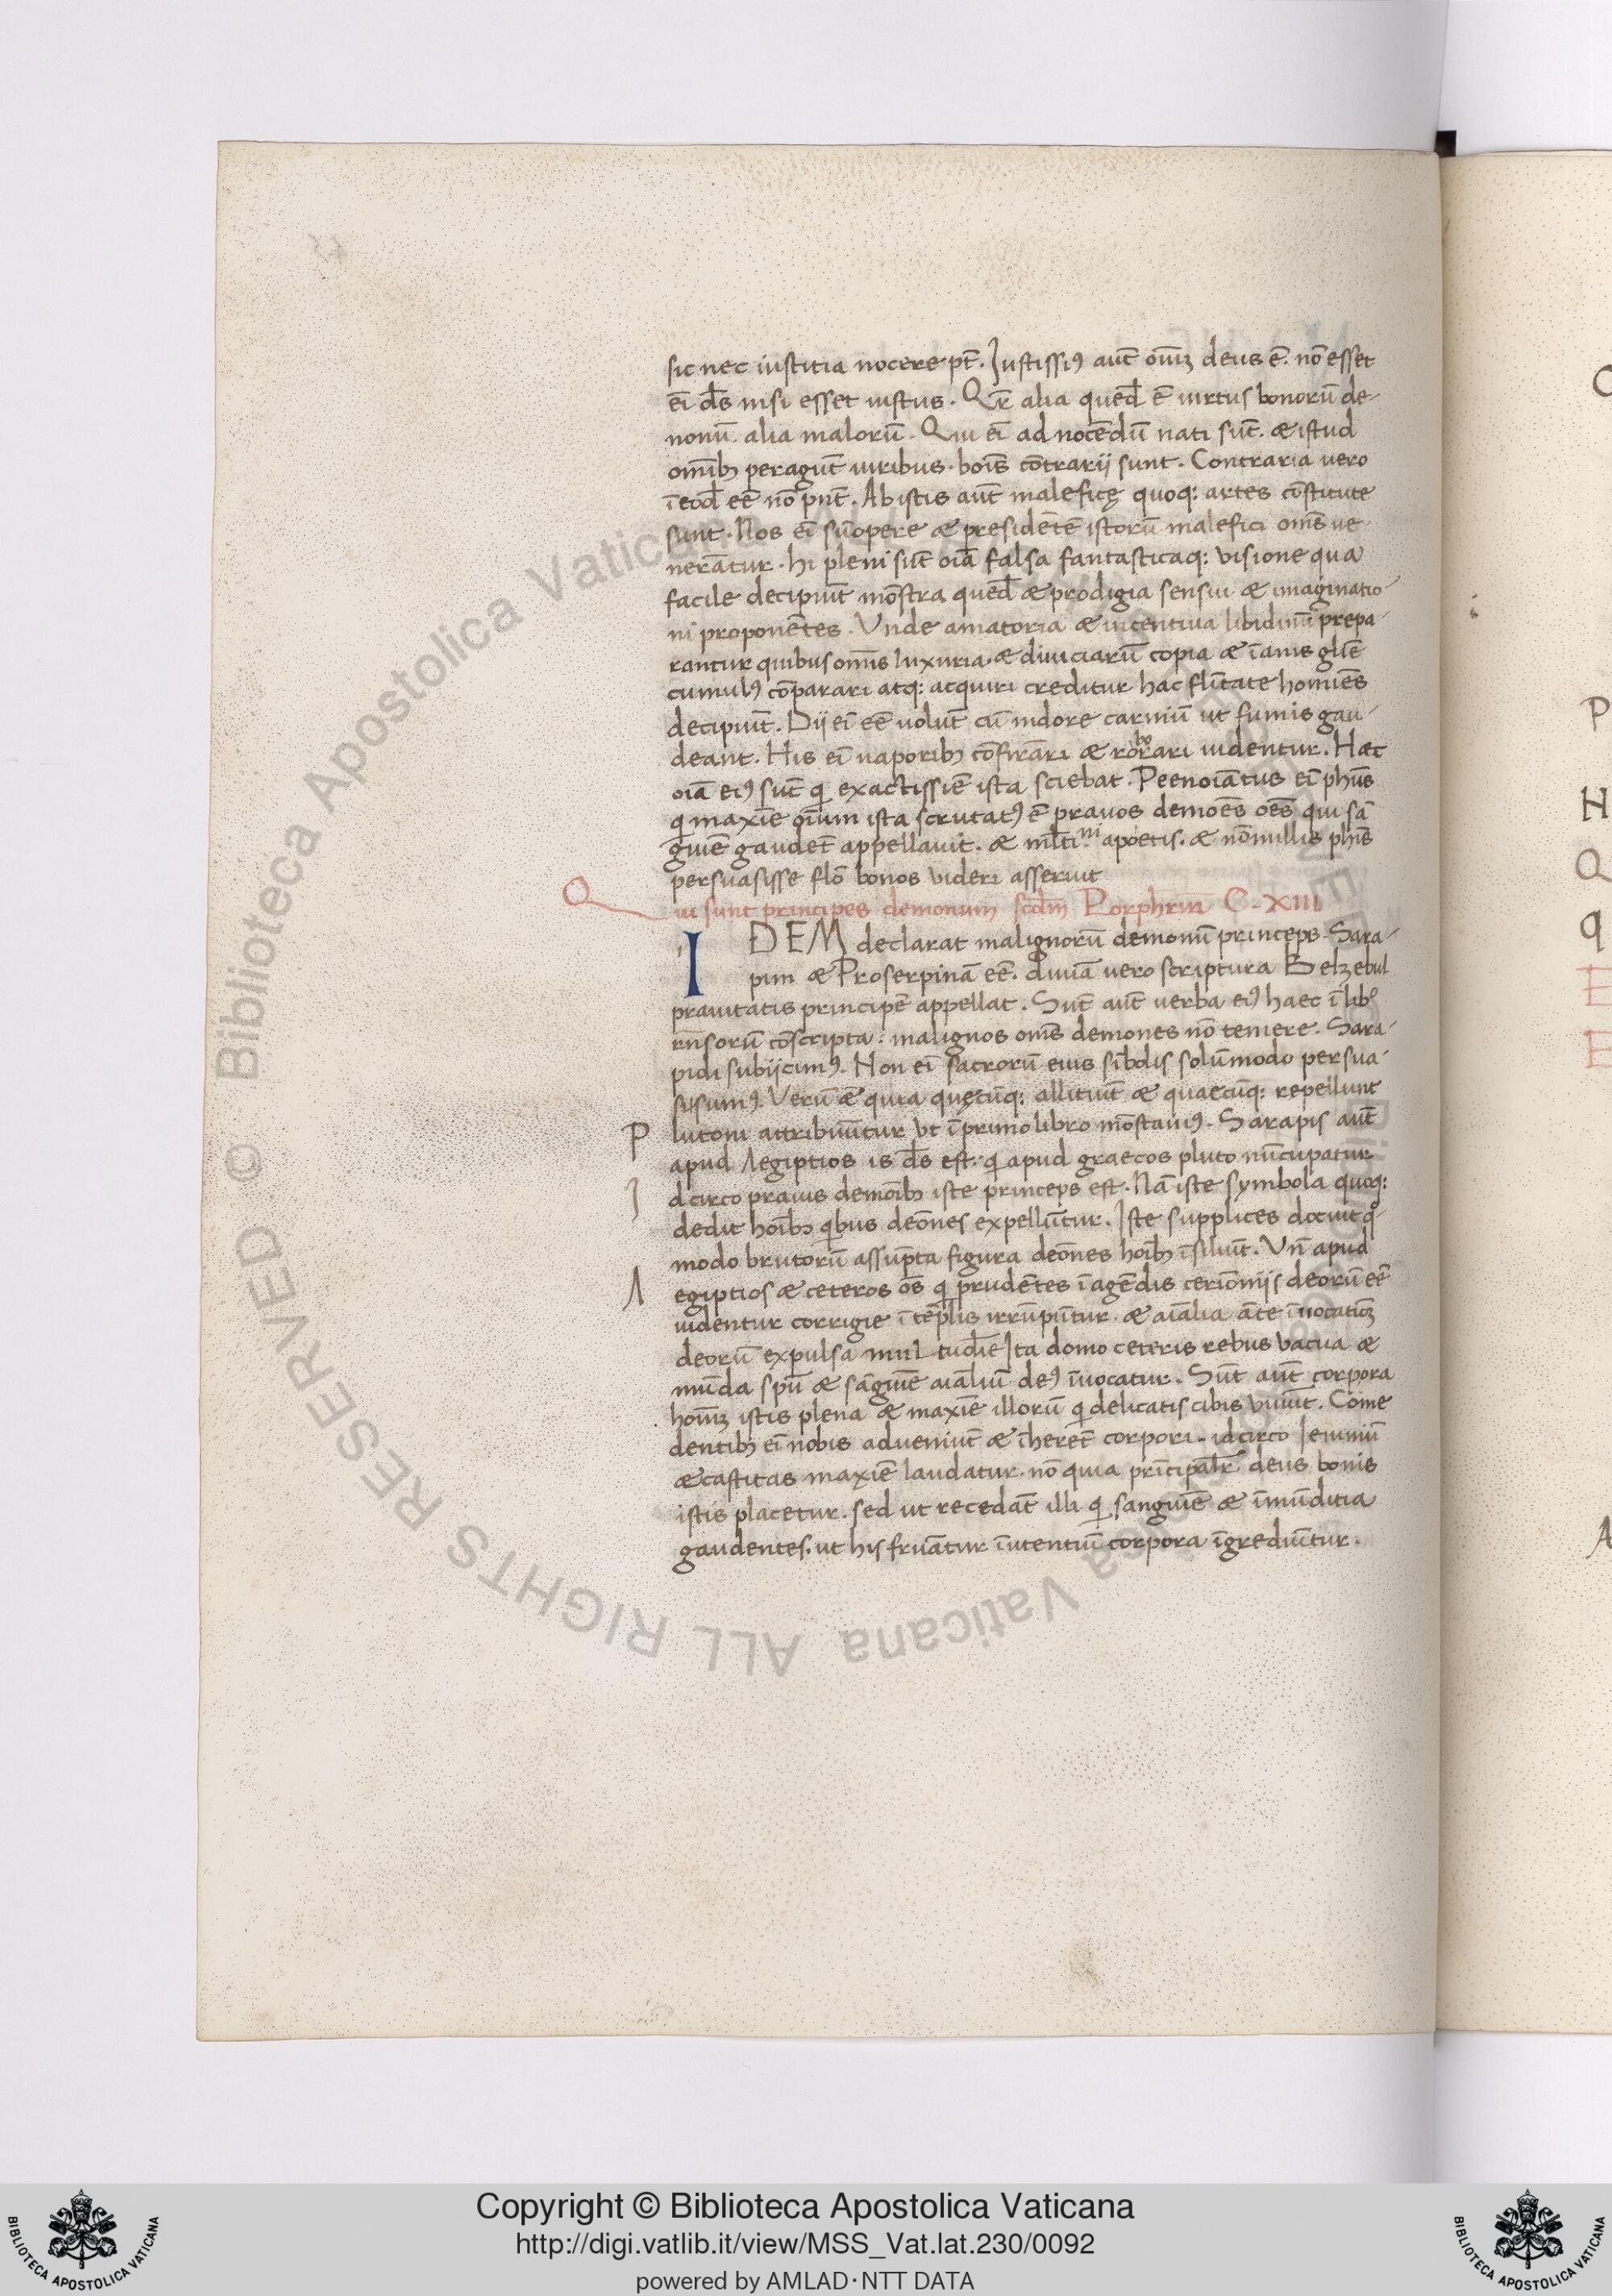 sic nec iustitia nocere pt̄. Iustissiꝰ aūt om̄ꝫ deus ē. nō esset
ēi ds̄ nisi esset iustus. Qr̄ alia queđ ē uirtus bonorū de
nonū. alia malorū. Qui ēi ad nocēdū nati sūt. & istud
omībꝫ peragūt uiribus. boīs cōtrarij sunt. Contraria uero
ī eođ eē nō pn̄t. Ab istis aūt maleficę quoq: artes cōstitute
sunt. Nos ēi sūopere & presidētē istorū malefici om̄s ue
nerātur. hi pleni sūt oīa falsa fantasticaq: visione qua
facile decipiūt mōstra queđ & prodigia sensui & imaginatio
ni proponētes. Vnde amatoria & incentiua libidinū prepa
rantur quibus om̄is luxuria. & diuiciarū copia & īanis glīe
cumulꝰ cōparari atq: acquiri creditur hac flītate homīes
decipiūt. Dij ēi eē uolūt cū nidore carniū ut fumis gau
deant. His ēi uaporibꝫ cōfirāri & roborari uidentur. Haec
oīa eiꝰ sūt qi exactissīe ista sciebat. Peenoīatus ēi phūs
qi maxīe oīum ista scrutatꝰ ē prauos demoēs oēs qui sā
guīe gaudēt appellauit. & ml̄ti ni apoetis. & nōnullis phīs
persuasisse flō bonos videri asseruit
Qui sunt principes demonum scđm Porphriū C. XIII
IDEM declarat malignorū demonū princeps. Sara
pim & Proserpinā eē. diuīa vero scriptura Belzebul
prauitatis principē appellat. Sūt aūt uerba eiꝰ haec ī libo
rn̄sorū cōscripta: malignos om̄s demones nō temere. Sara
pidi subijcimꝰ. Non ēi sacrorū eius sīb̄olis solūmodo persua
sisumꝰ. Verū & quia quęcūq: allitiūt & quaecūq: repellunt
Plutoni attribuūtur vt ī primo libro mōstauiꝰ. Sarapis aūt
apud Aegiptios is ds̄ est. qi apud graecos pluto nūcupatur
Idcirco prauis demoībꝫ iste princeps est. Nā iste symbola quoq:
dedit hoībꝫ qibus deōnes expellūtur. Iste supplices docuit qͦ
modo brutorū assūpta figura deōnes hoībꝫ īsiliūt. Vn̄ apud
Aegiptios & ceteros os̄ qi prudētes ī agēdis ceriōnijs deorū eē
uidentur corrigie ī tēplis irrūpūtur. & aīalia āte īuocatiōꝫ
deorū expulsa multudīe Ita domo ceteris rebus vacua &
mūda spū & sāguīe aīaliū deꝰ īuocatur. Sūt aūt corpora
homīꝫ istis plena & maxīe illorū qi delicatis cibis viuūt. Cōme
dentibꝫ ēi nobis adueniūt & īherēt corpori. idcirco Ieiuniū
& castitas maxīe laudatur. nō quia prīcipalr̄ deus bonis
istis placetur. sed ut recedāt illi qi sanguīe & īmūditia
gaudentes. ut his fruātur īutentiū corpora īgrediūtur.
Copyright © Biblioteca Apostolica Vaticana
http://digi.vatlib.it/view/MSS_Vat.lat.230/0092
powered by AMLAD·NTT DATA